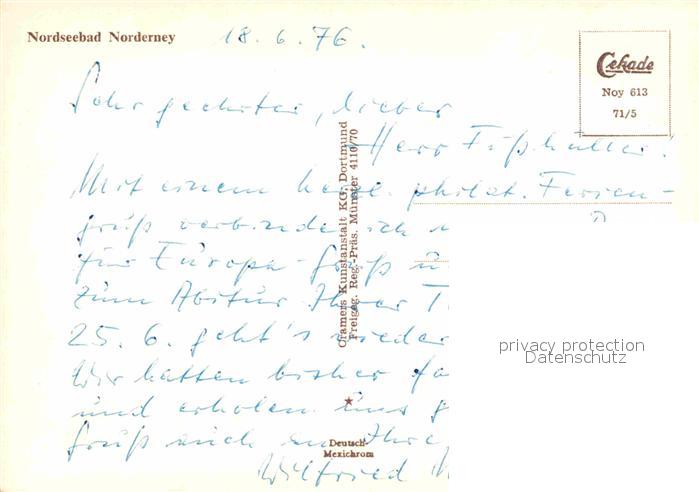 Nordseebad Norderney
18. 6. 76.
Cekade
Noy 613
71/5
Sehr geehrter, lieber
Herr
Mit einem herzl. philat. Ferien-
gruß verbinde ich
für Europa-Gruß
zum Abitur Ihrer
25. 6. geht's wieder
Wir hatten bisher
und erholen uns
Gruß auch an Ihre
Wilfried
Cramers Kunstanstalt KG, Dortmund
Freigeg. Reg.-Präs. Münster 4110/70
Deutsch-
Mexichrom
privacy protection
Datenschutz